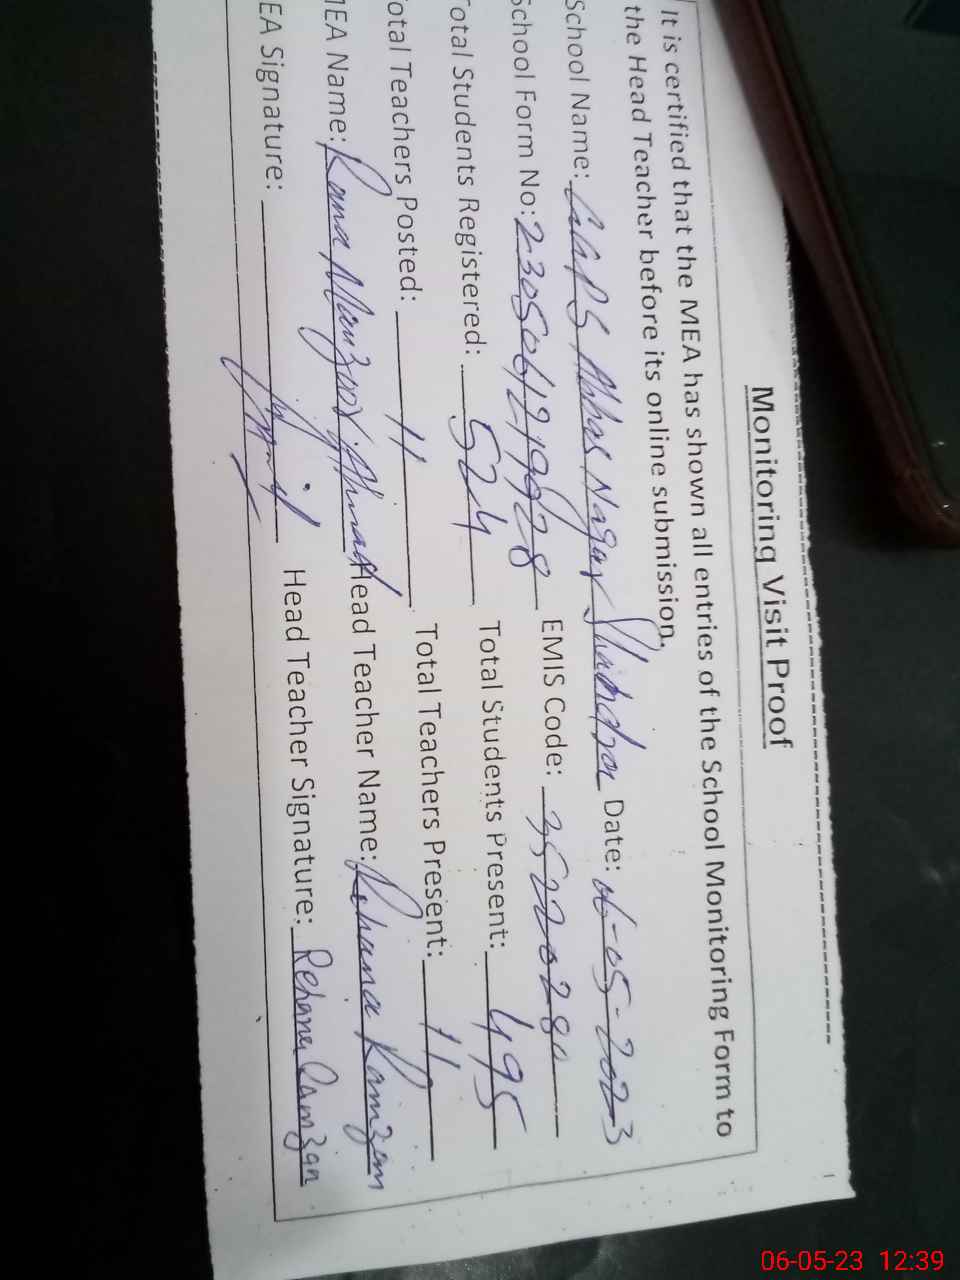 Monitoring Visit Proof
It is certified that the MEA has shown all entries of the School Monitoring Form to
the Head Teacher before its online submission.
School Name: Abbas Nagar Shahdra Date: 06-05-2023
School Form No: 23050612199928 EMIS Code: 35220280
Total Students Registered: 524 Total Students Present: 495
Total Teachers Posted: 11 Total Teachers Present: 11
MEA Name: Rana Manzoor Ahmad Head Teacher Name: Rehana Ramzan
EA Signature: Head Teacher Signature: Rehana Ramzan
06-05-23 12:39